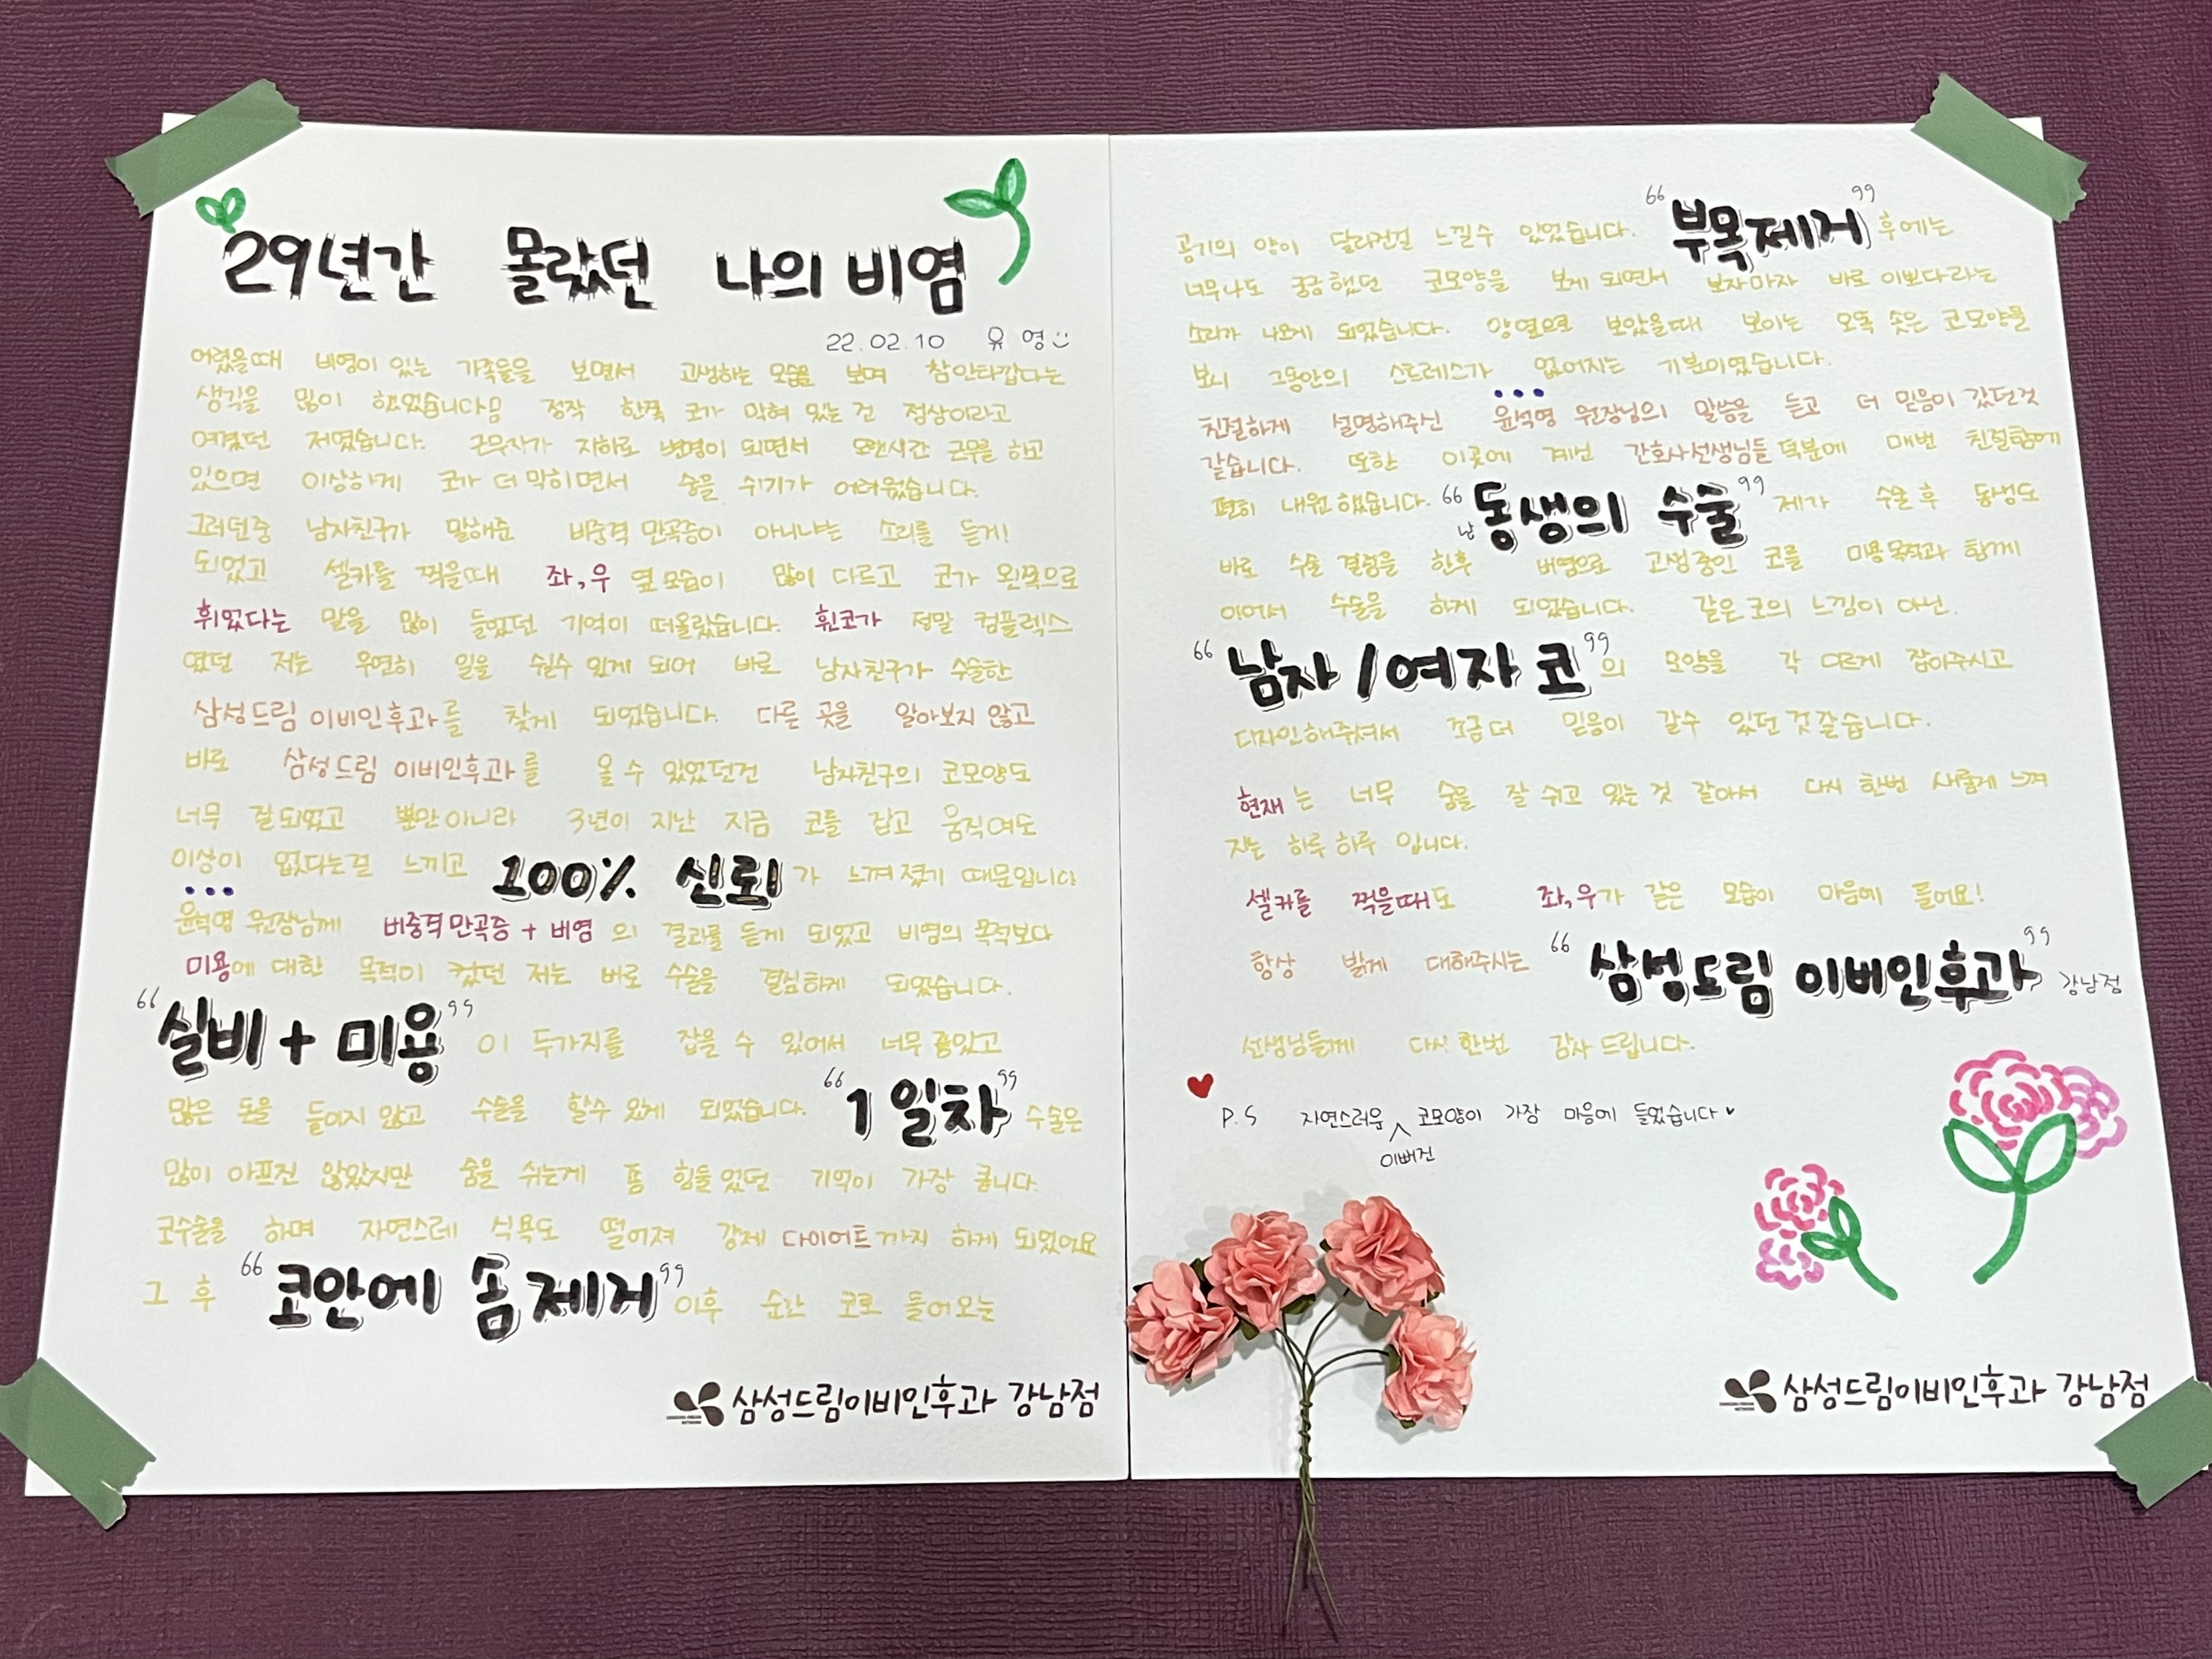 29년간 몰랐던 나의 비염
22.02.10 유 영
어렸을때 비염이 있는 가족들을 보면서 고생하는 모습을 보며 참 안타깝다는
생각을 많이 했었습니다 정작 한쪽 코가 막혀 있는 건 정상이라고
여겼던 저였습니다. 근무지가 지하로 변경이 되면서 오랜시간 근무를 하고
있으면 이상하게 코가 더 막히면서 숨을 쉬기가 어려웠습니다.
그러던중 남자친구가 말해준 비중격 만곡증이 아니냐는 소리를 듣게
되었고 셀카를 찍을때 좌,우 옆 모습이 많이 다르고 코가 왼쪽으로
휘었다는 말을 많이 들었던 기억이 떠올랐습니다. 휜코가 정말 컴플렉스
였던 저는 우연히 일을 쉴수 있게 되어 바로 남자친구가 수술한
삼성드림 이비인후과를 찾게 되었습니다. 다른 곳을 알아보지 않고
바로 삼성드림 이비인후과를 올 수 있었던건 남자친구의 코모양도
너무 잘되었고 뿐만아니라 3년이 지난 지금 코를 잡고 움직여도
이상이 없다는걸 느끼고 100% 신뢰가 느껴졌기 때문입니다
윤석영 원장님께 비중격만곡증 + 비염의 결과를 듣게 되었고 비염의 목적보다
미용에 대한 목적이 컸던 저는 바로 수술을 결심하게 되었습니다.
“실비 + 미용” 이 두가지를 잡을 수 있어서 너무 좋았고
많은 돈을 들이지 않고 수술을 할수 있게 되었습니다. “1일차” 수술은
많이 아프진 않았지만 숨을 쉬는게 좀 힘들었던 기억이 가장 큽니다.
코수술을 하며 자연스레 식욕도 떨어져 강제 다이어트까지 하게 되었어요
그 후 “코안에 솜 제거” 이후 순간 코로 들어오는
삼성드림이비인후과 강남점
공기의 양이 달라진걸 느낄수 있었습니다. “부목제거” 후에는
너무나도 궁금했던 코모양을 보게 되면서 보자마자 바로 이쁘다라는
소리가 나오게 되었습니다. 양옆으로 보았을때 보이는 오똑 솟은 코모양을
보니 그동안의 스트레스가 없어지는 기분이였습니다.
친절하게 설명해주신 윤석영 원장님의 말씀을 듣고 더 믿음이 갔던것
같습니다. 또한 이곳에 계신 간호사선생님들 덕분에 매번 친절함에
편히 내원 했습니다. “남동생의 수술” 제가 수술 후 동생도
바로 수술 결정을 한후 비염으로 고생중인 코를 미용목적과 함께
이어서 수술을 하게 되었습니다. 같은 코의 느낌이 아닌.
“남자 / 여자 코”의 모양을 각 다르게 잡아주시고
디자인해주셔서 조금 더 믿음이 갈수 있던 것 같습니다.
현재는 너무 숨을 잘 쉬고 있는 것 같아서 다시 한번 새롭게 느껴
지는 하루 하루 입니다.
셀카를 찍을때도 좌,우가 같은 모습이 마음에 들어요!
항상 밝게 대해주시는 “삼성드림 이비인후과” 강남점
선생님들께 다시 한번 감사 드립니다.
P.S 자연스러운 이뻐진 코모양이 가장 마음에 들었습니다♥
삼성드림이비인후과 강남점